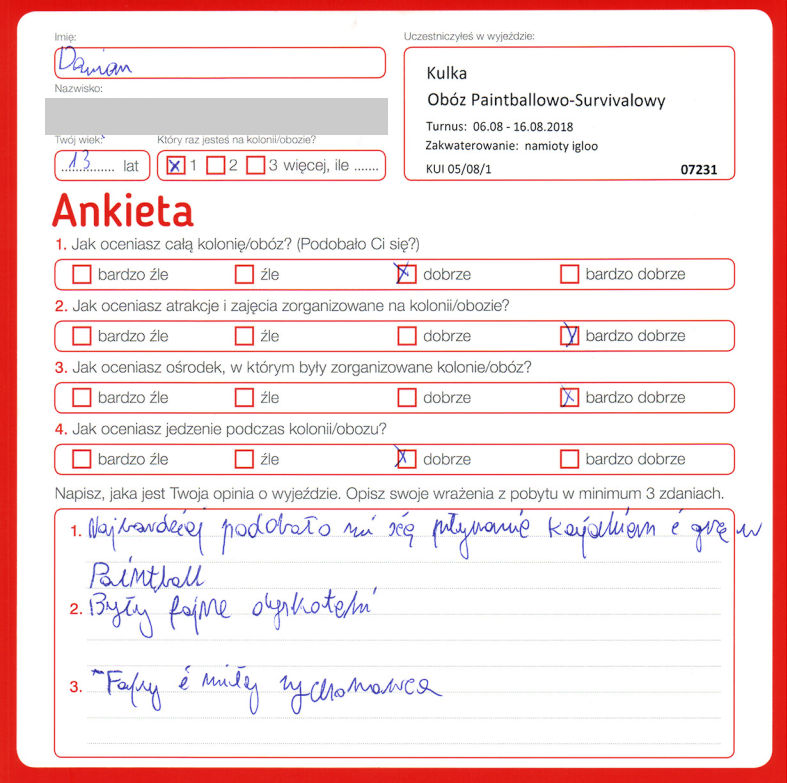 Imię:
Damian
Nazwisko:
Twój wiek:
13 lat
Który raz jesteś na kolonii/obozie?
x 1 2 3 więcej, ile .......
Uczestniczyłeś w wyjeździe:
Kulka
Obóz Paintballowo-Survivalowy
Turnus: 06.08 - 16.08.2018
Zakwaterowanie: namioty igloo
KUI 05/08/1 07231
Ankieta
1. Jak oceniasz całą kolonię/obóz? (Podobało Ci się?)
bardzo źle źle x dobrze bardzo dobrze
2. Jak oceniasz atrakcje i zajęcia zorganizowane na kolonii/obozie?
bardzo źle źle dobrze x bardzo dobrze
3. Jak oceniasz ośrodek, w którym były zorganizowane kolonie/obóz?
bardzo źle źle dobrze x bardzo dobrze
4. Jak oceniasz jedzenie podczas kolonii/obozu?
bardzo źle źle x dobrze bardzo dobrze
Napisz, jaka jest Twoja opinia o wyjeździe. Opisz swoje wrażenia z pobytu w minimum 3 zdaniach.
1. Najbardziej podobało mi się pływanie kajakiem i grę w
Paintball
2. Były fajne dyskoteki
3. Fajny i miły